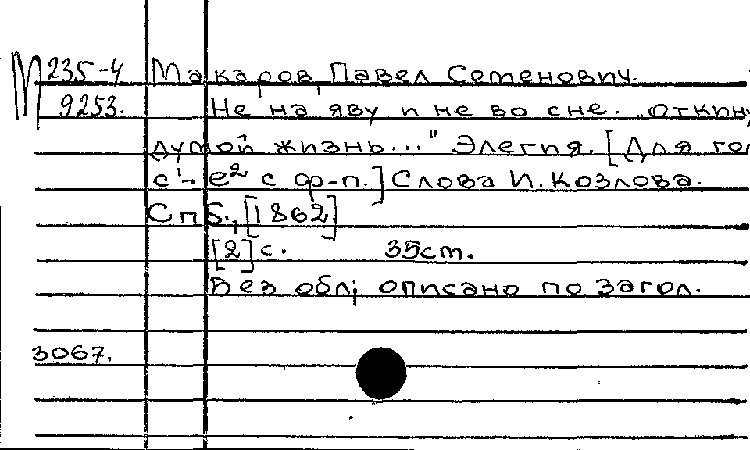 М 235-4 Макаров, Павел Семенович.
9253. Не на яву и не во сне. „Откин
думой жизнь..." Элегия. [Для гол
с'-е² с ф-п.] Слова И. Козлова.
Спб., [1862]
[2] с. 35см.
Без обл; описано по загол.
3067.